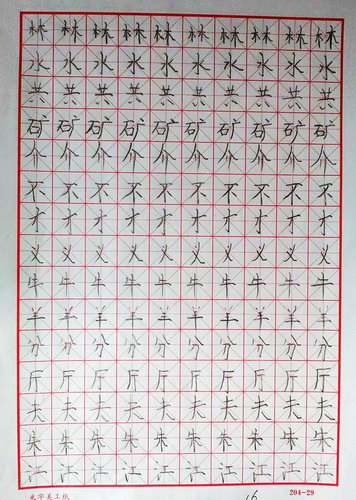 林林林林林林林林林林
水水水水水水水水水水
共共共共共共共共共共
矿矿矿矿矿矿矿矿矿矿
介介介介介介介介介介
不不不不不不不不不不
才才才才才才才才才才
义义义义义义义义义义
牛牛牛牛牛牛牛牛牛牛
羊羊羊羊羊羊羊羊羊羊
分分分分分分分分分分
厅厅厅厅厅厅厅厅厅厅
夫夫夫夫夫夫夫夫夫夫
朱朱朱朱朱朱朱朱朱朱
江江江江江江江江江江
米字美工纸 16 204-29